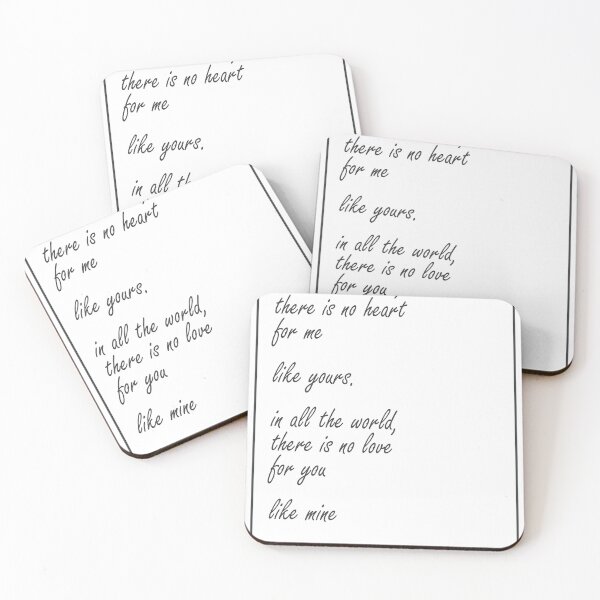 there is no heart
for me
like yours.
in all th
there is no heart
for me
like yours.
in all the world,
there is no love
for you
there is no heart
for me
like yours.
in all the world,
there is no love
for you
like mine
there is no heart
for me
like yours.
in all the world,
there is no love
for you
like mine